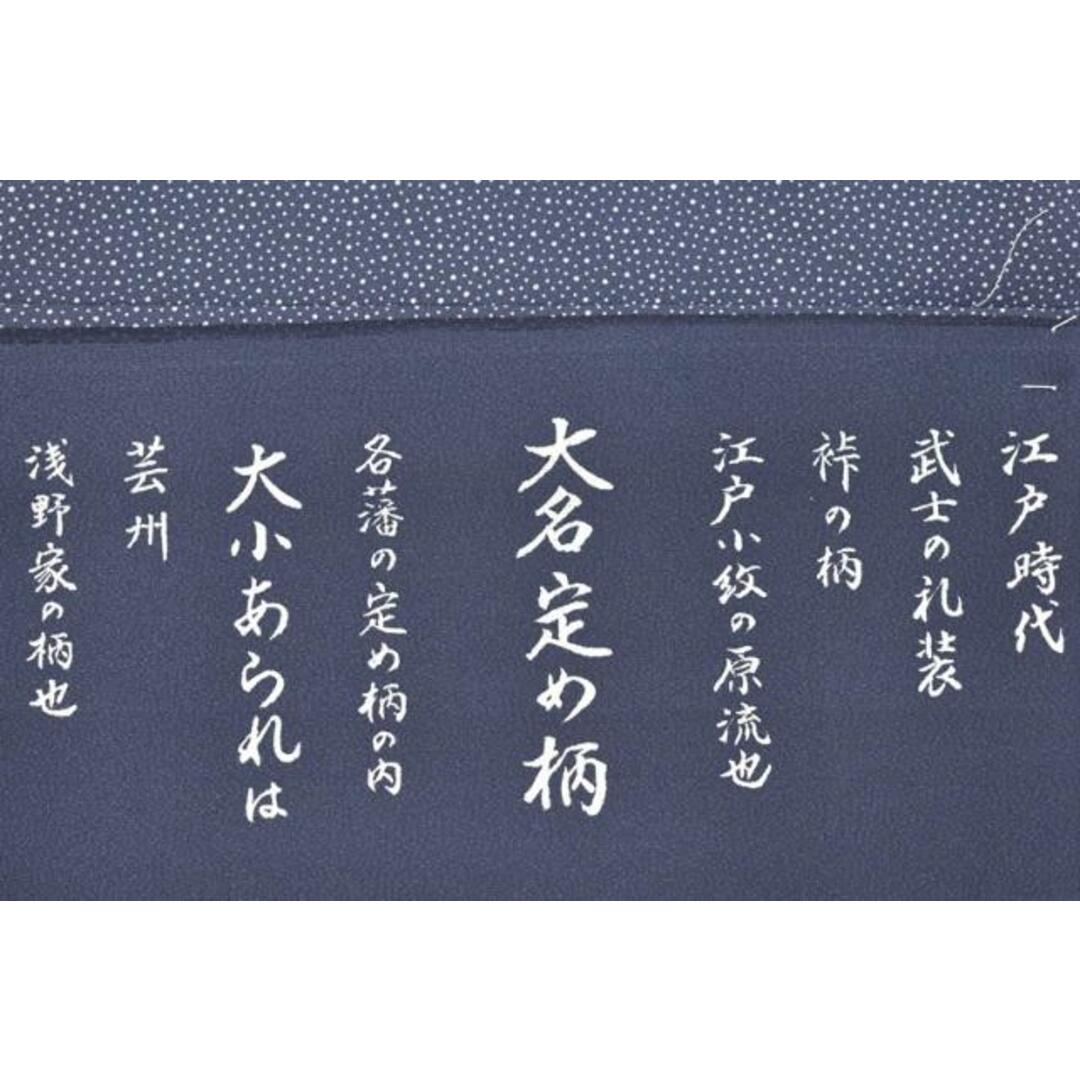 一
江戸時代
武士の礼装
裃の柄
江戸小紋の原流也
大名定め柄
各藩の定め柄の内
大小あられは
芸州
浅野家の柄也